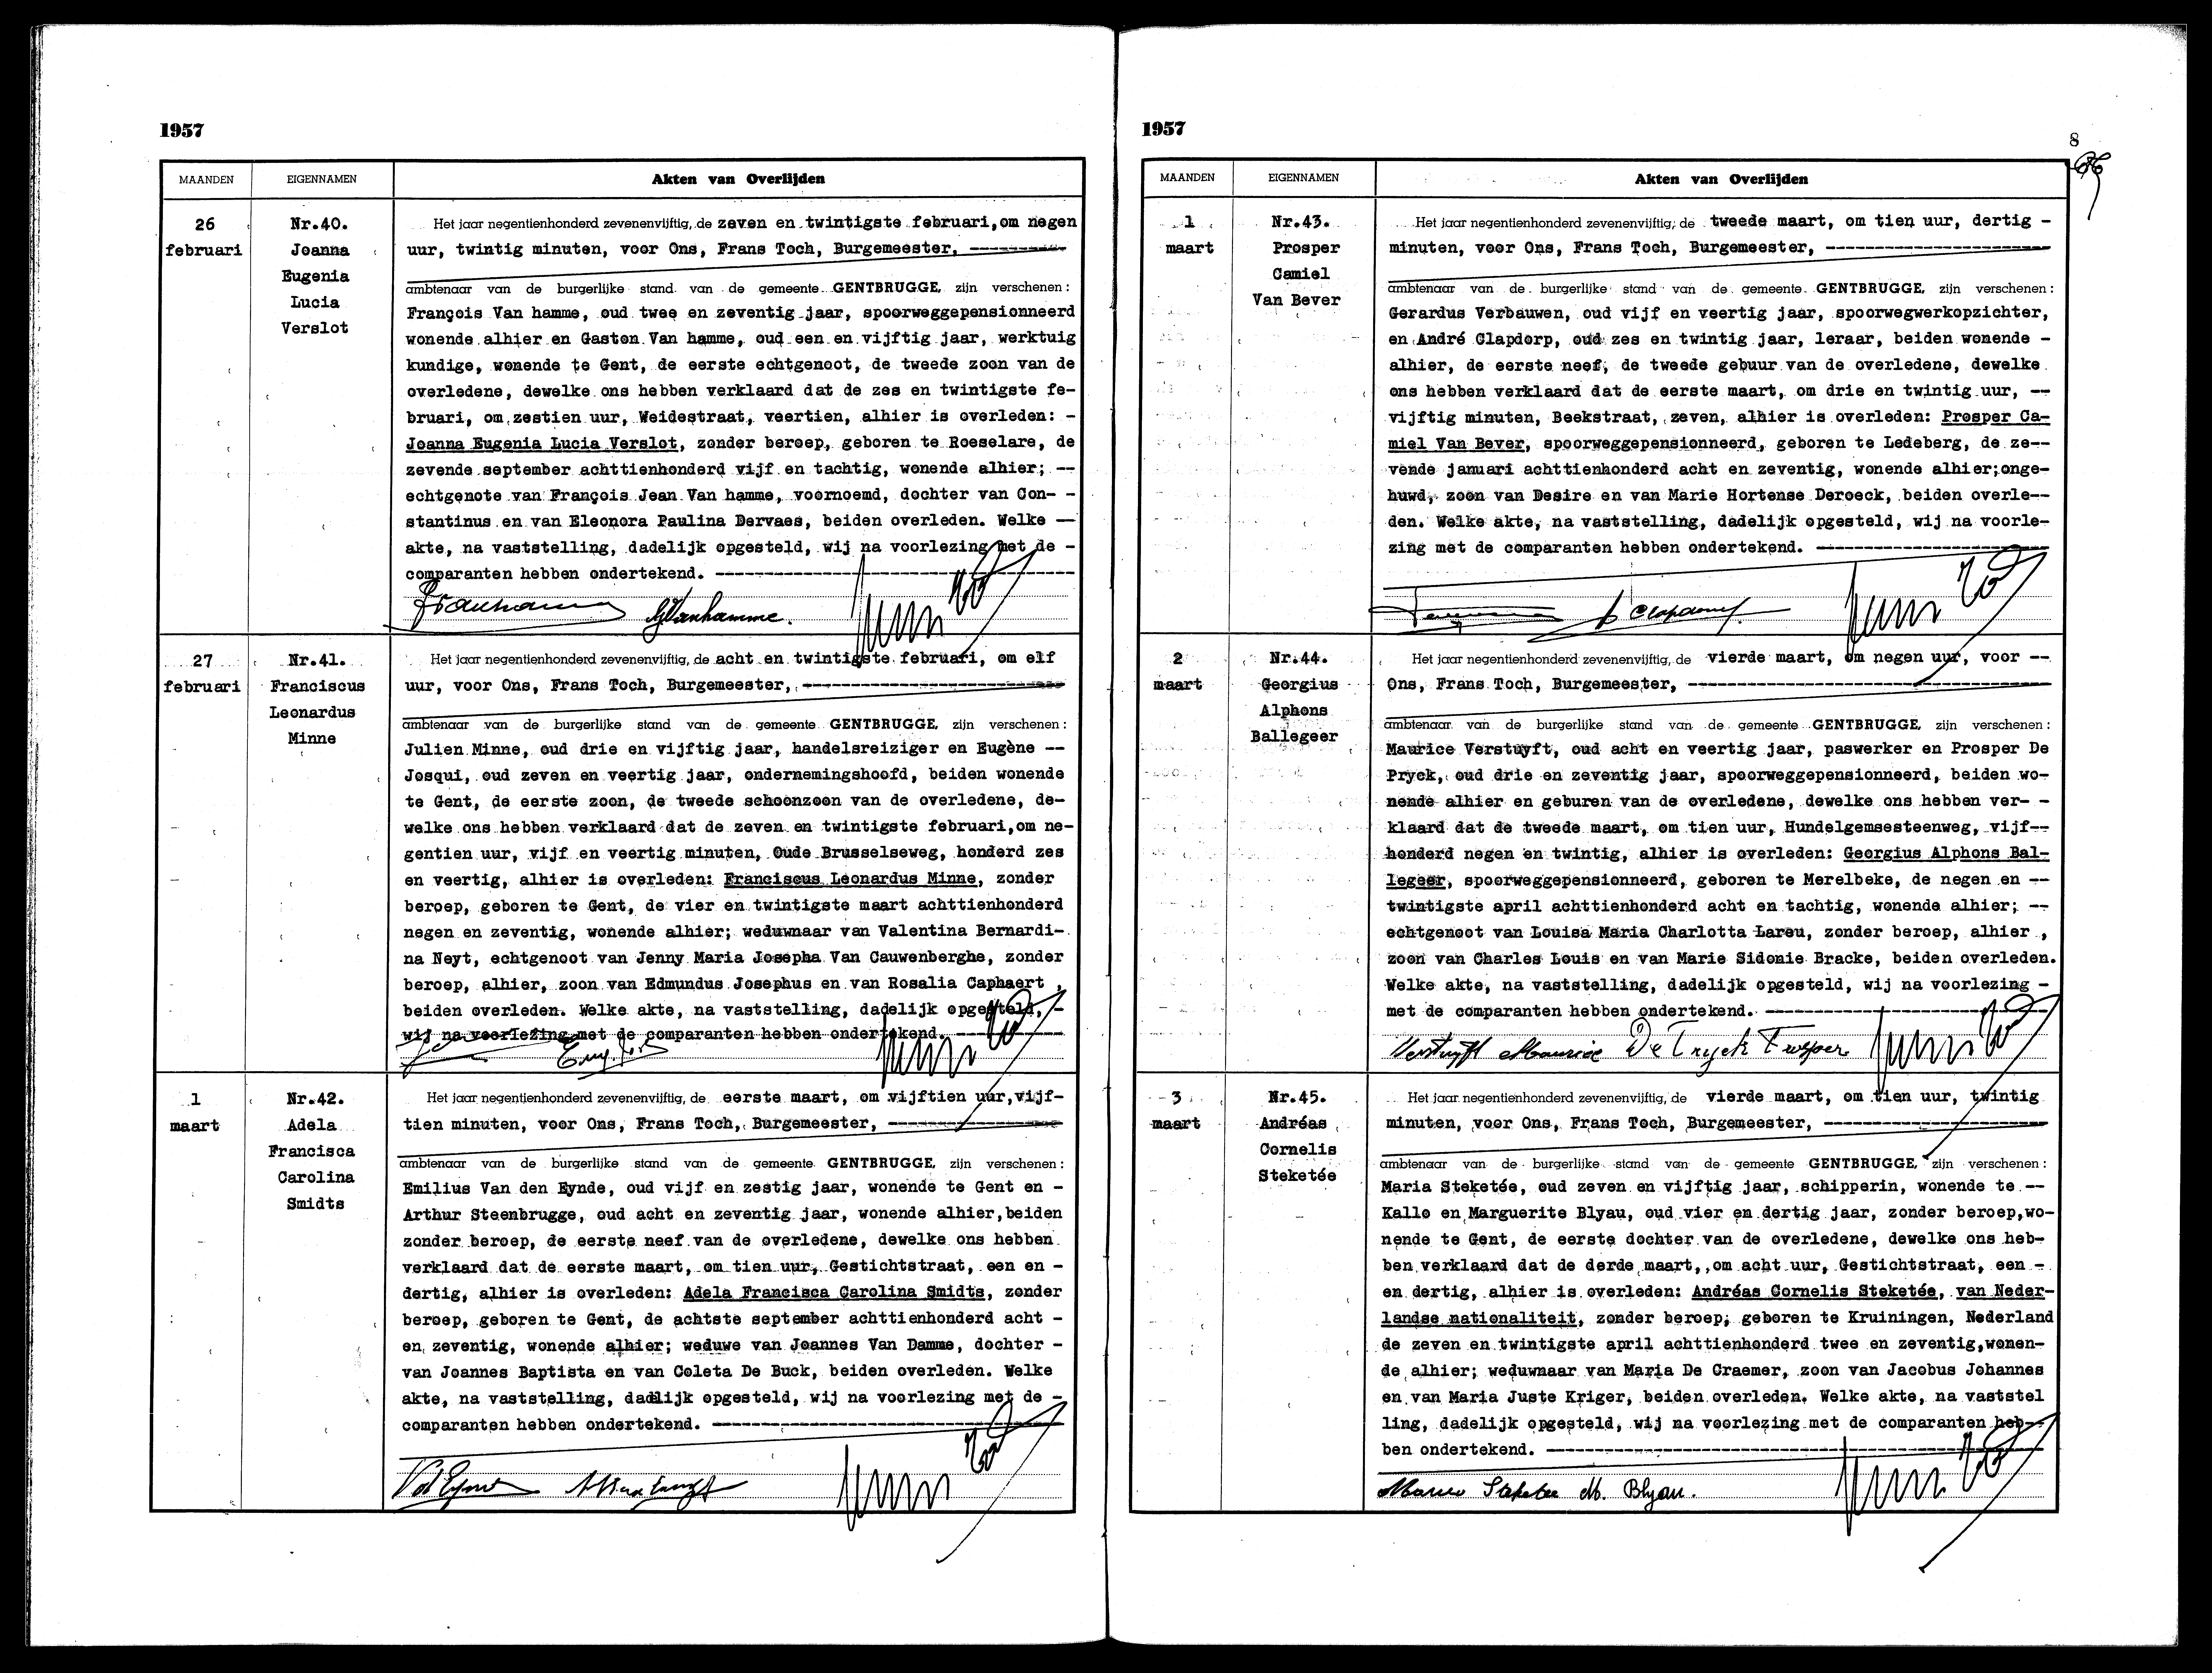 1957
MAANDEN EIGENNAMEN Akten van Overlijden
26
februari
Nr.40.
Joanna
Eugenia
Lucia
Verslot
Het jaar negentienhonderd zevenenvijftig, de zeven en twintigste februari,om negen
uur, twintig minuten, voor Ons, Frans Toch, Burgemeester, ----------
ambtenaar van de burgerlijke stand van de gemeente GENTBRUGGE, zijn verschenen:
François Van hamme, oud twee en zeventig jaar, spoorweggepensionneerd
wonende alhier en Gaston Van hamme, oud een en vijftig jaar, werktuig
kundige, wonende te Gent, de eerste echtgenoot, de tweede zoon van de
overledene, dewelke ons hebben verklaard dat de zes en twintigste fe-
bruari, om zestien uur, Weidestraat, veertien, alhier is overleden: -
Joanna Eugenia Lucia Verslot, zonder beroep, geboren te Roeselare, de
zevende september achttienhonderd vijf en tachtig, wonende alhier; --
echtgenote van François Jean Van hamme, voornoemd, dochter van Con- -
stantinus en van Eleonora Paulina Dervaes, beiden overleden. Welke --
akte, na vaststelling, dadelijk opgesteld, wij na voorlezing met de -
comparanten hebben ondertekend. ----------
GVanhamme.
27
februari
Nr.41.
Franciscus
Leonardus
Minne
Het jaar negentienhonderd zevenenvijftig, de acht en twintigste februari, om elf
uur, voor Ons, Frans Toch, Burgemeester, ----------
ambtenaar van de burgerlijke stand van de gemeente GENTBRUGGE, zijn verschenen:
Julien Minne, oud drie en vijftig jaar, handelsreiziger en Eugène --
Josqui, oud zeven en veertig jaar, ondernemingshoofd, beiden wonende
te Gent, de eerste zoon, de tweede schoonzoon van de overledene, de-
welke ons hebben verklaard dat de zeven en twintigste februari,om ne-
gentien uur, vijf en veertig minuten, Oude Brusselseweg, honderd zes
en veertig, alhier is overleden: Franciscus Leonardus Minne, zonder
beroep, geboren te Gent, de vier en twintigste maart achttienhonderd
negen en zeventig, wonende alhier; weduwnaar van Valentina Bernardi-
na Neyt, echtgenoot van Jenny Maria Josepha Van Cauwenberghe, zonder
beroep, alhier, zoon van Edmundus Josephus en van Rosalia Caphaert ,
beiden overleden. Welke akte, na vaststelling, dadelijk opgesteld, -
wij na voorlezing met de comparanten hebben ondertekend. ----------
1
maart
Nr.42.
Adela
Francisca
Carolina
Smidts
Het jaar negentienhonderd zevenenvijftig, de eerste maart, om vijftien uur,vijf-
tien minuten, voor Ons, Frans Toch, Burgemeester, ----------
ambtenaar van de burgerlijke stand van de gemeente GENTBRUGGE, zijn verschenen:
Emilius Van den Eynde, oud vijf en zestig jaar, wonende te Gent en -
Arthur Steenbrugge, oud acht en zeventig jaar, wonende alhier,beiden
zonder beroep, de eerste neef van de overledene, dewelke ons hebben
verklaard dat de eerste maart, om tien uur, Gestichtstraat, een en -
dertig, alhier is overleden: Adela Francisca Carolina Smidts, zonder
beroep, geboren te Gent, de achtste september achttienhonderd acht -
en zeventig, wonende alhier; weduwe van Joannes Van Damme, dochter -
van Joannes Baptista en van Coleta De Buck, beiden overleden. Welke
akte, na vaststelling, dadelijk opgesteld, wij na voorlezing met de -
comparanten hebben ondertekend. ----------
1957
8
MAANDEN EIGENNAMEN Akten van Overlijden
1
maart
Nr.43.
Prosper
Camiel
Van Bever
Het jaar negentienhonderd zevenenvijftig, de tweede maart, om tien uur, dertig -
minuten, voor Ons, Frans Toch, Burgemeester, ----------
ambtenaar van de burgerlijke stand van de gemeente GENTBRUGGE, zijn verschenen:
Gerardus Verbauwen, oud vijf en veertig jaar, spoorwegwerkopzichter,
en André Clapdorp, oud zes en twintig jaar, leraar, beiden wonende -
alhier, de eerste neef, de tweede gebuur van de overledene, dewelke
ons hebben verklaard dat de eerste maart, om drie en twintig uur, --
vijftig minuten, Beekstraat, zeven, alhier is overleden: Prosper Ca-
miel Van Bever, spoorweggepensionneerd, geboren te Ledeberg, de ze--
vende januari achttienhonderd acht en zeventig, wonende alhier;onge-
huwd, zoon van Desire en van Marie Hortense Deroeck, beiden overle--
den. Welke akte, na vaststelling, dadelijk opgesteld, wij na voorle-
zing met de comparanten hebben ondertekend. ----------
2
maart
Nr.44.
Georgius
Alphons
Ballegeer
Het jaar negentienhonderd zevenenvijftig, de vierde maart, om negen uur, voor --
Ons, Frans Toch, Burgemeester, ----------
ambtenaar van de burgerlijke stand van de gemeente GENTBRUGGE, zijn verschenen:
Maurice Verstuyft, oud acht en veertig jaar, paswerker en Prosper De
Pryck, oud drie en zeventig jaar, spoorweggepensionneerd, beiden wo-
nende alhier en geburen van de overledene, dewelke ons hebben ver- -
klaard dat de tweede maart, om tien uur, Hundelgemsesteenweg, vijf--
honderd negen en twintig, alhier is overleden: Georgius Alphons Bal-
legeer, spoorweggepensionneerd, geboren te Merelbeke, de negen en --
twintigste april achttienhonderd acht en tachtig, wonende alhier; --
echtgenoot van Louisa Maria Charlotta Lareu, zonder beroep, alhier ,
zoon van Charles Louis en van Marie Sidonie Bracke, beiden overleden.
Welke akte, na vaststelling, dadelijk opgesteld, wij na voorlezing -
met de comparanten hebben ondertekend. ----------
Verstuyft Maurice De Pryck Prosper
3
maart
Nr.45.
Andréas
Cornelis
Steketée
Het jaar negentienhonderd zevenenvijftig, de vierde maart, om tien uur, twintig
minuten, voor Ons, Frans Toch, Burgemeester, ----------
ambtenaar van de burgerlijke stand van de gemeente GENTBRUGGE, zijn verschenen:
Maria Steketée, oud zeven en vijftig jaar, schipperin, wonende te --
Kallo en Marguerite Blyau, oud vier en dertig jaar, zonder beroep,wo-
nende te Gent, de eerste dochter van de overledene, dewelke ons heb-
ben verklaard dat de derde maart, om acht uur, Gestichtstraat, een -
en dertig, alhier is overleden: Andréas Cornelis Steketée, van Neder-
landse nationaliteit, zonder beroep, geboren te Kruiningen, Nederland
de zeven en twintigste april achttienhonderd twee en zeventig,wonen-
de alhier; weduwnaar van Maria De Craemer, zoon van Jacobus Johannes
en van Maria Juste Kriger, beiden overleden. Welke akte, na vaststel
ling, dadelijk opgesteld, wij na voorlezing met de comparanten heb--
ben ondertekend. ----------
M. Blyau.